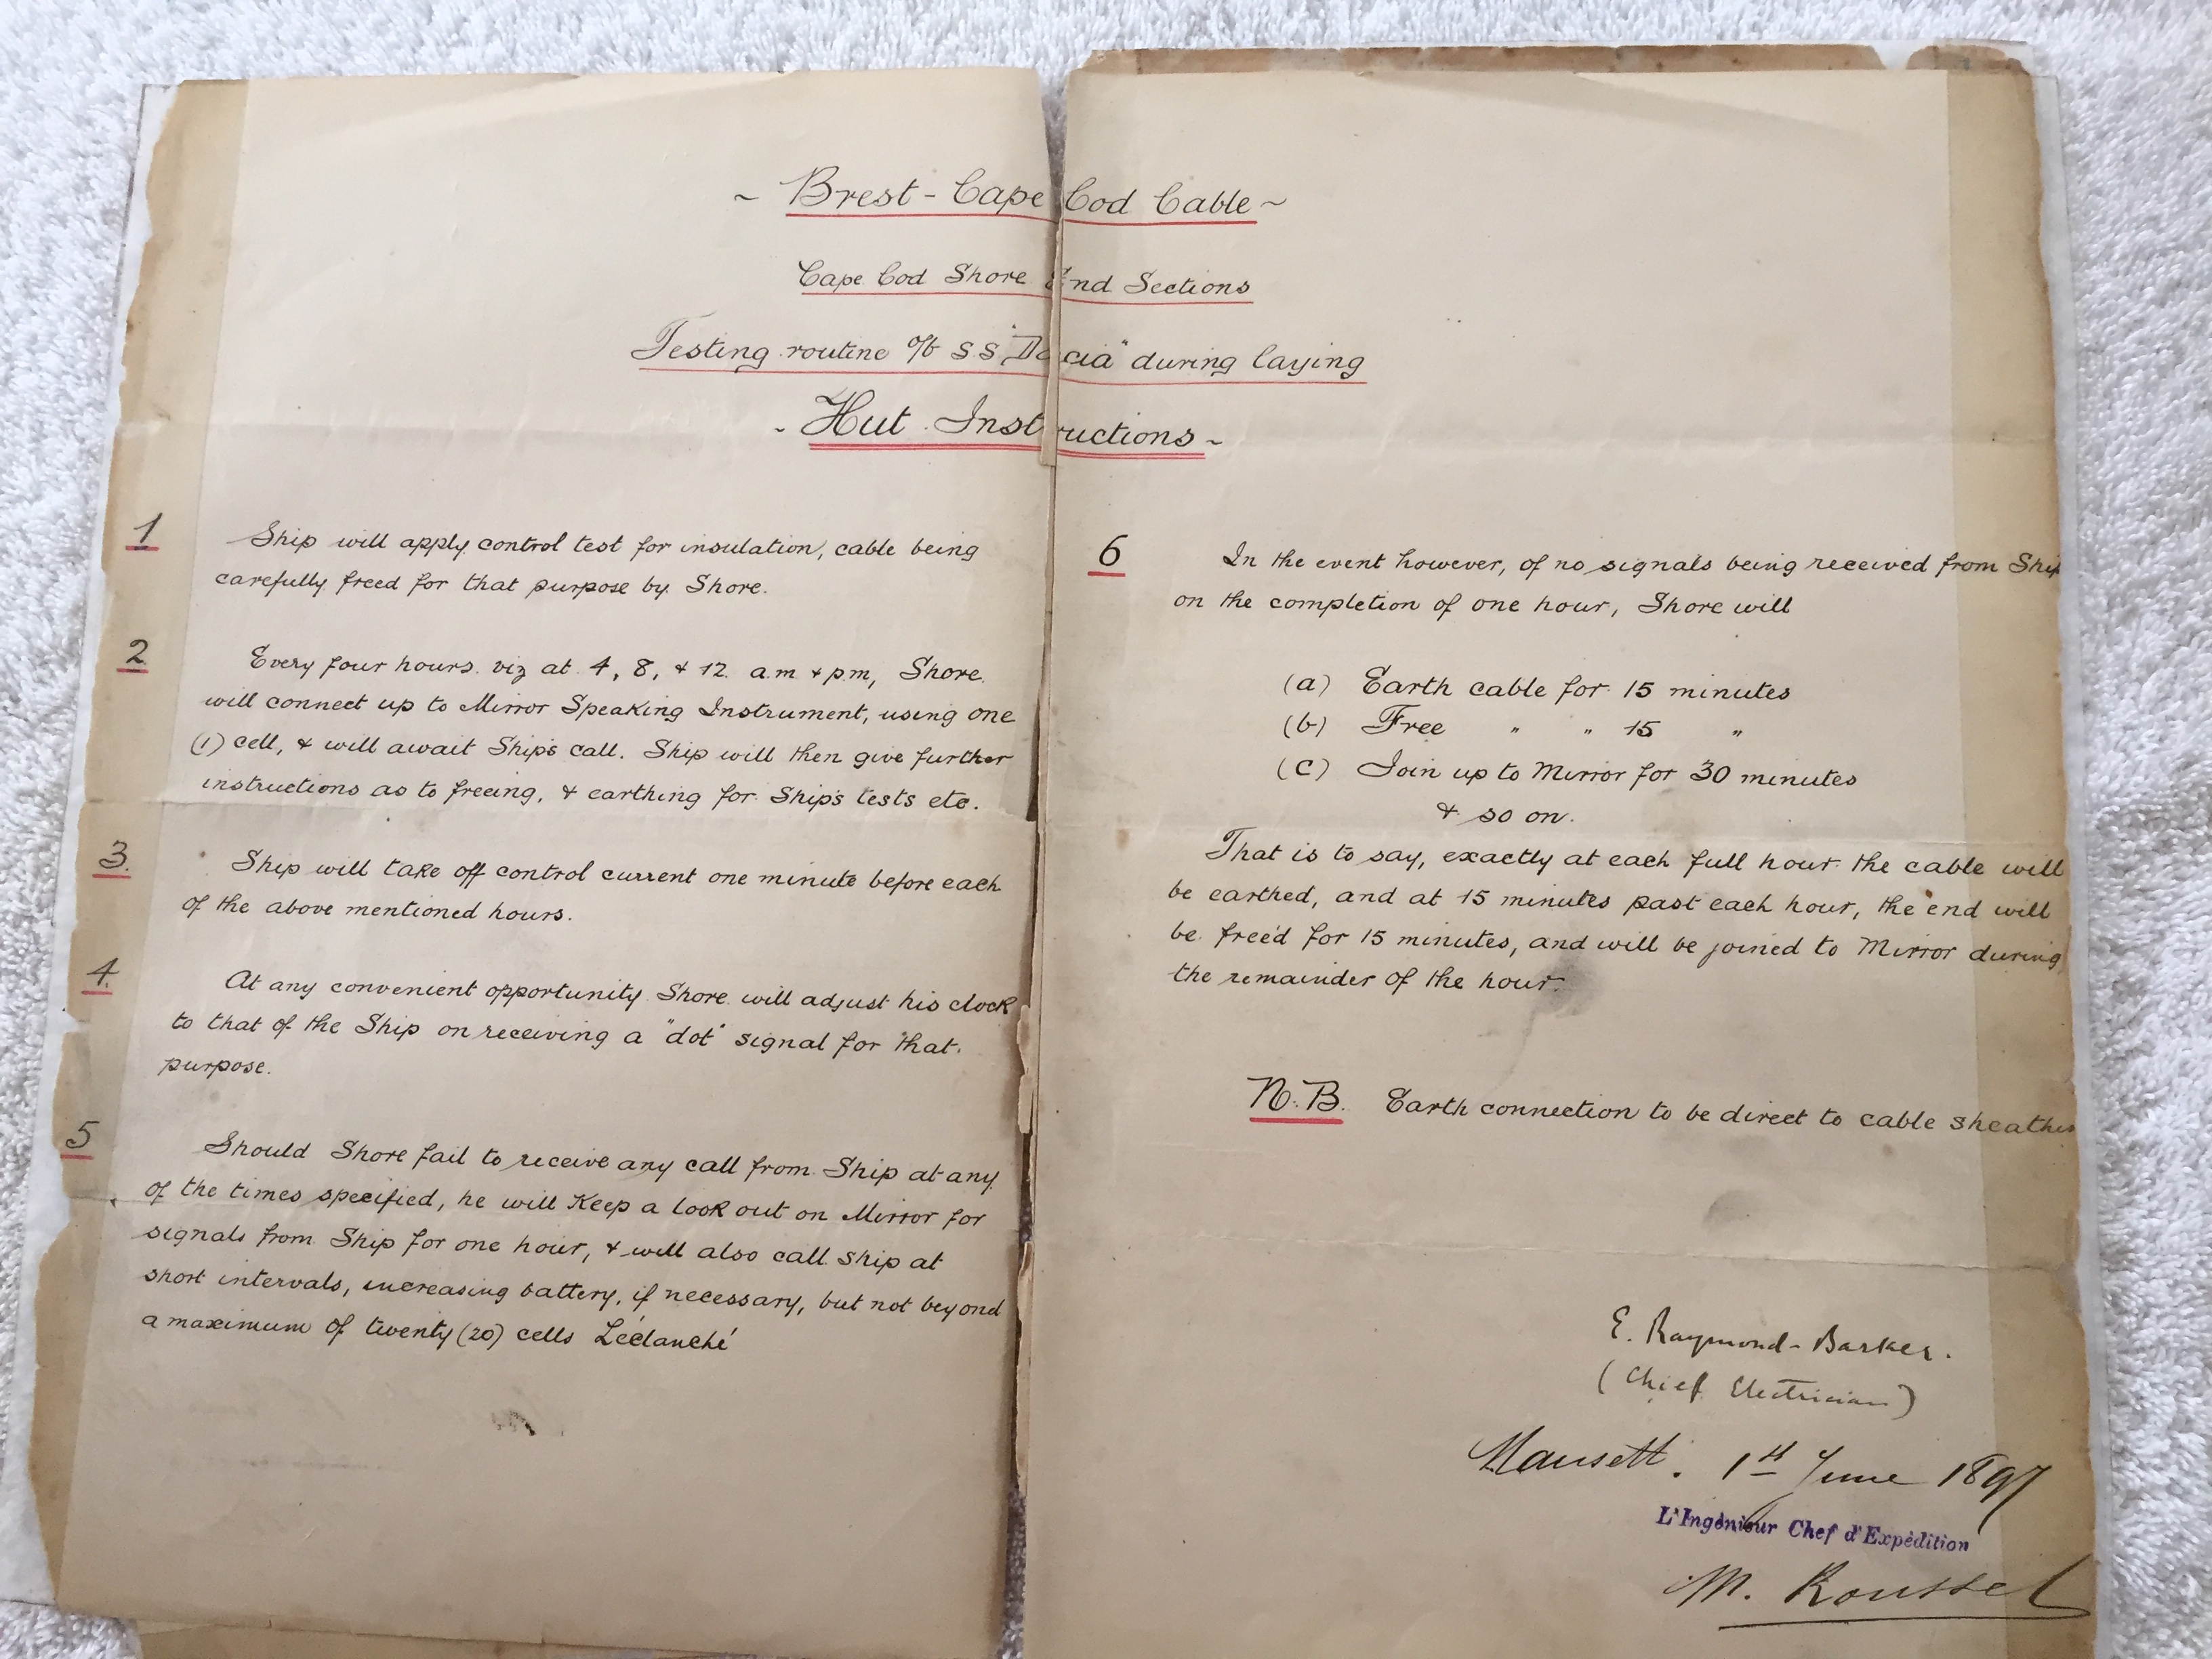 ~ Brest - Cape Cod Cable ~
Cape Cod Shore End Sections
Testing routine o/b S.S "Dacia" during laying
- Hut Instructions ~
1 Ship will apply control test for insulation, cable being
carefully freed for that purpose by Shore.
2 Every four hours. viz at 4, 8, & 12. a.m & p.m, Shore
will connect up to Mirror Speaking Instrument, using one
(1) cell, & will await Ship's call. Ship will then give further
instructions as to freeing, & earthing for Ship's tests etc.
3. Ship will take off control current one minute before each
of the above mentioned hours.
4. At any convenient opportunity Shore will adjust his clock
to that of the Ship on receiving a "dot" signal for that
purpose.
5 Should Shore fail to receive any call from Ship at any
of the times specified, he will Keep a look out on Mirror for
signals from Ship for one hour, & will also call Ship at
short intervals, increasing battery, if necessary, but not beyond
a maximum of twenty (20) cells Léclanché
6 In the event however, of no signals being received from Ship
on the completion of one hour, Shore will
(a) Earth cable for 15 minutes
(b) Free " " 15 "
(c) Join up to Mirror for 30 minutes
& so on.
That is to say, exactly at each full hour the cable will
be earthed, and at 15 minutes past each hour, the end will
be free'd for 15 minutes, and will be joined to Mirror during
the remainder of the hour.
N.B. Earth connection to be direct to cable
E. Raymond-Barker.
(Chief Electrician)
1st June 1897
L'Ingénieur Chef d'Expédition
M. Roussel